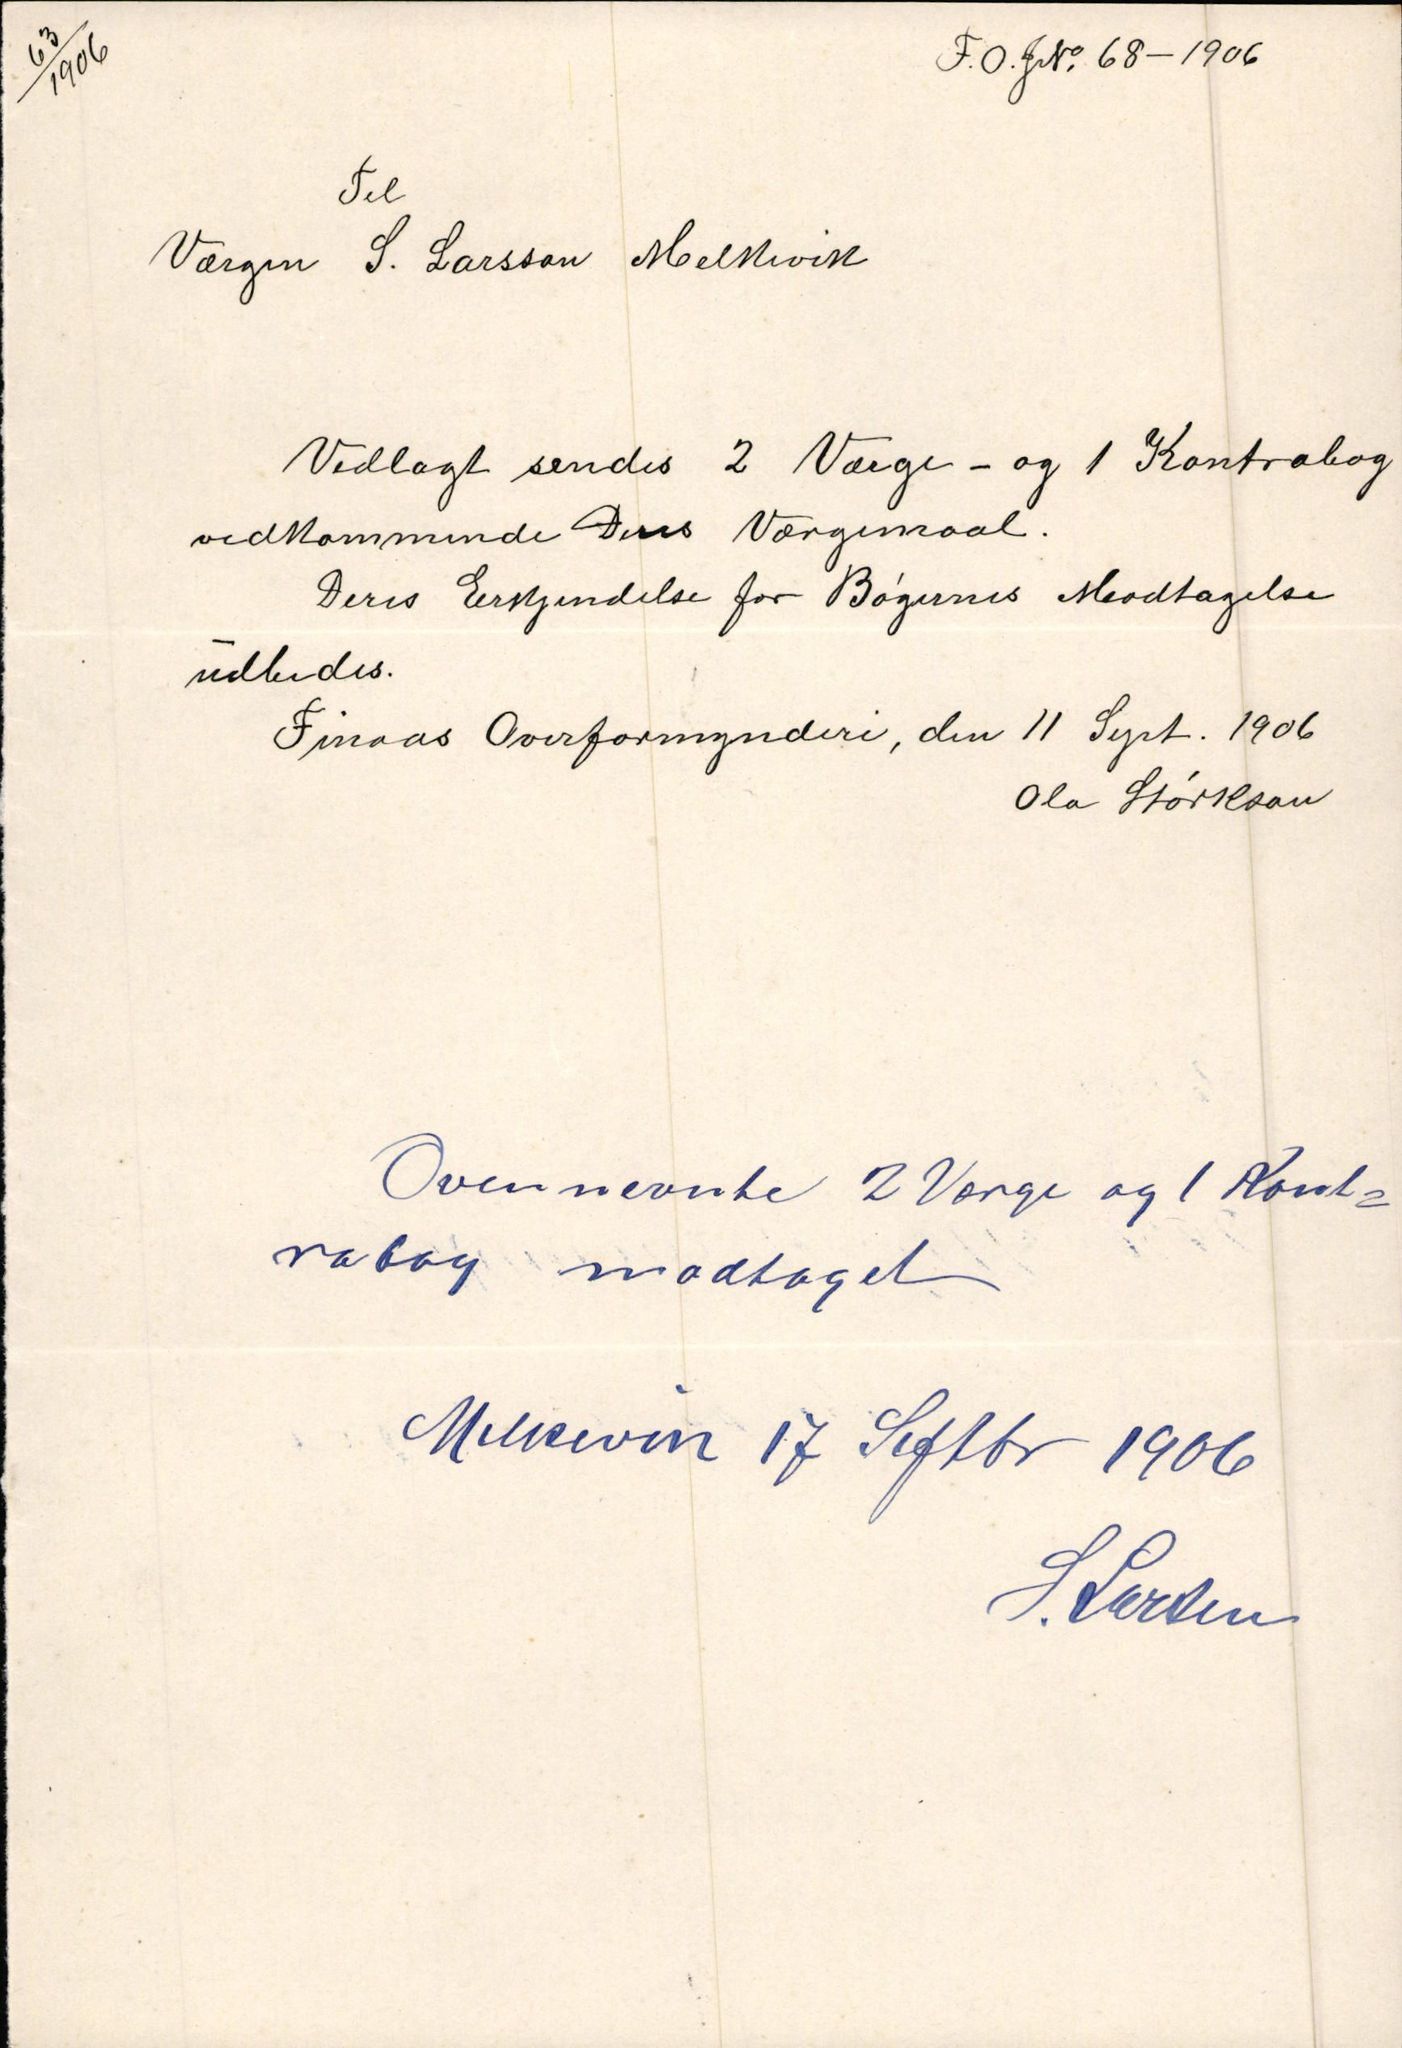 63/1906
F.O.J.No. 68 – 1906
Til
Værgen S. Larsson Melkevik
Vedlagt sendes 2 Værge – og 1 Kontrabog
vedkommende Deres Værgemaal.
Deres Erkjendelse for Bøgernes Modtagelse
udbedes.
Finaas Overformynderi, den 11 Sept. 1906
Ola Størkson
Ovennevnte 2 Værge og 1 Kont=
rabog modtaget
Melkevik 17 Septbr 1906
S. Larsen